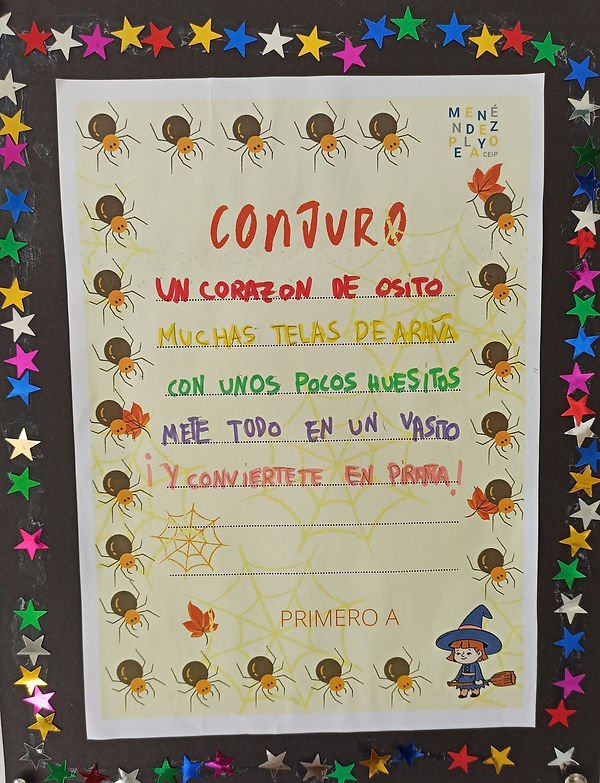 MENÉ
NDEZ
PELAYO
CEIP
CONJURO
UN CORAZON DE OSITO
MUCHAS TELAS DE ARAÑA
CON UNOS POCOS HUESITOS
METE TODO EN UN VASITO
¡Y CONVIERTETE EN PIRAÑA!
PRIMERO A